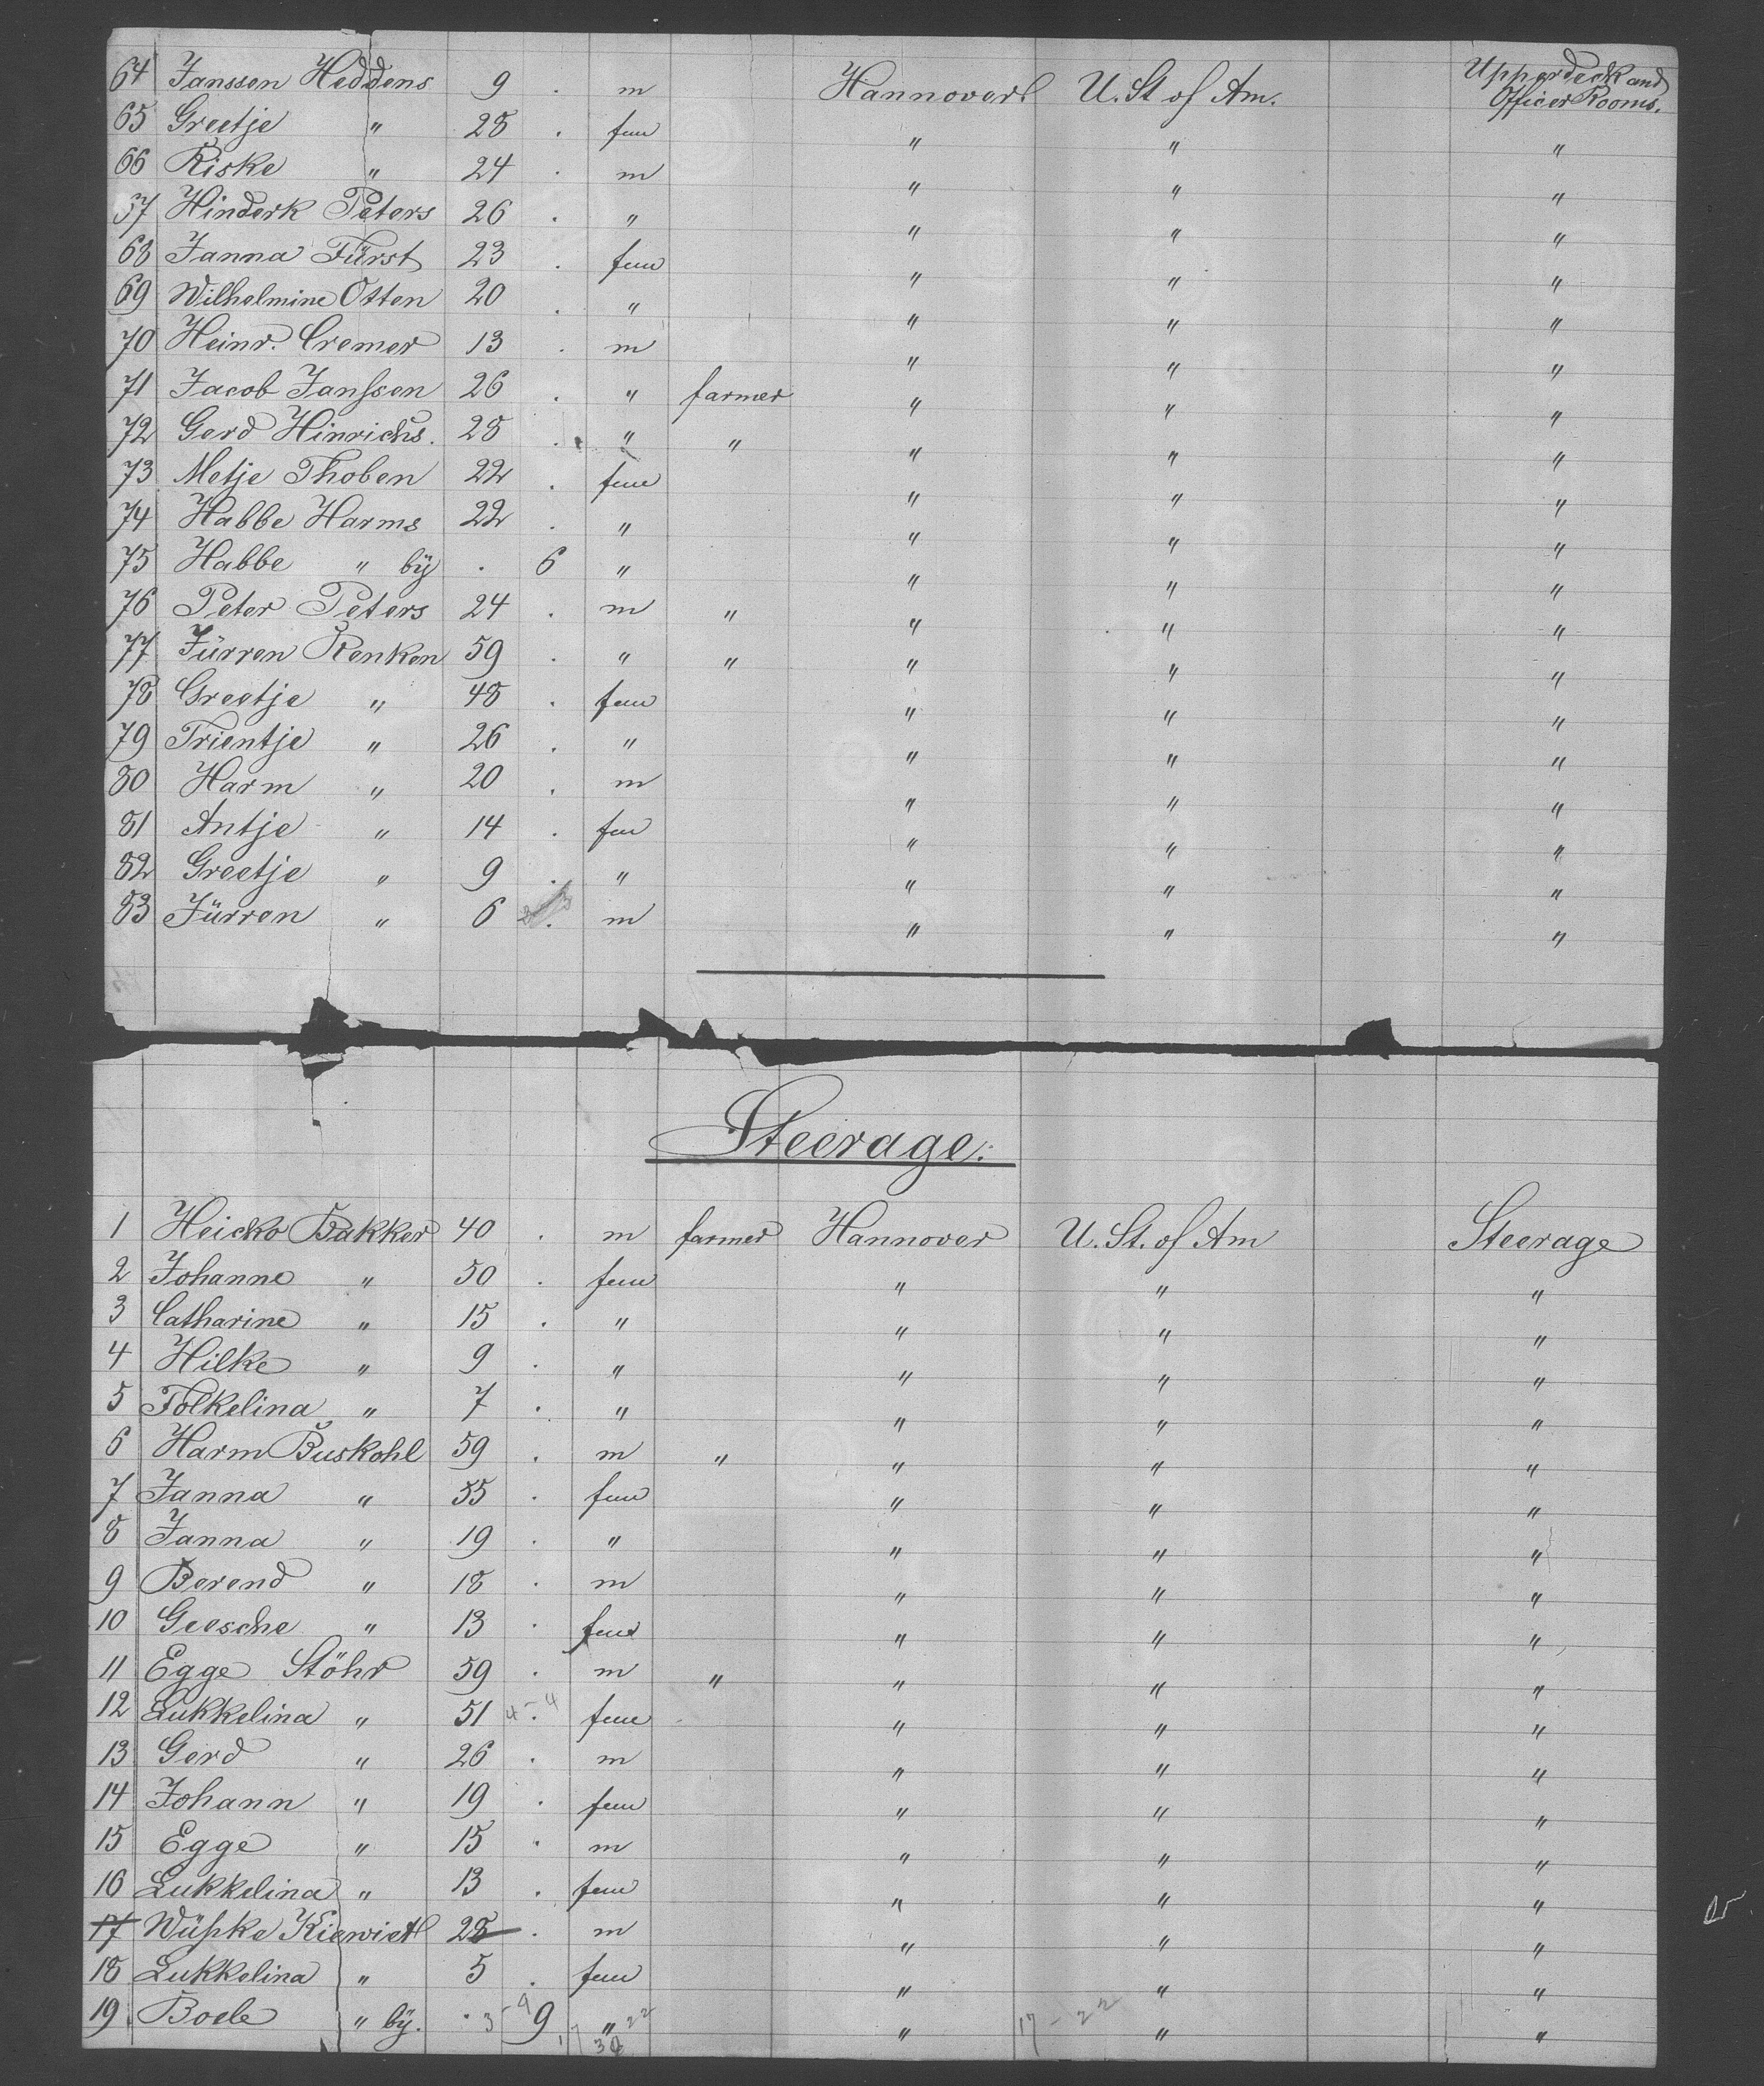 64 Janssen Heddens 9 . m Hannover U. St of Am. Upperdeck and Officer Rooms.
65 Greetje " 28 . fem " " "
66 Riske " 24 . m " " "
67 Hinderk Peters 26 . " " " "
68 Janna Fürst 23 . fem " " "
69 Wilhelmine Otten 20 . " " " "
70 Heinr. Cremer 13 . m " " "
71 Jacob Janssen 26 . " farmer " " "
72 Gerd Hinrichs. 28 . " " " " "
73 Metje Thoben 22 . fem " " "
74 Habbe Harms 22 . " " " "
75 Habbe " bÿ . 6 " " " "
76 Peter Peters 24 . m " " " "
77 Jürren Renken 59 . " " " " "
78 Greetje " 48 . fem " " "
79 Trientje " 26 . " " " "
80 Harm " 20 . m " " "
81 Antje " 14 . fem " " "
82 Greetje " 9 . " " " "
83 Jürren " 6 . m " " "
Steerage:
1 Heicko Bakker 40 . m farmer Hannover U. St. of Am Steerage
2 Johanne " 50 . fem " " "
3 Catharine " 15 . " " " "
4 Hilke " 9 . " " " "
5 Folkelina " 7 . " " " "
6 Harm Buskohl 59 . m " " " "
7 Janna " 55 . fem " " "
8 Janna " 19 . " " " "
9 Berend " 18 . m " " "
10 Geesche " 13 . fem " " "
11 Egge Stöhr 59 . m " " " "
12 Lukkelina " 51 4-4 . fem " " "
13 Gerd " 26 . m " " "
14 Johann " 19 . fem " " "
15 Egge " 15 . m " " "
16 Lukkelina " 13 . fem " " "
17 Wüpke Kiewiet 28 . m " " "
18 Lukkelina " 5 . fem " " "
19 Boele " bÿ. . 3-9 9 " " " "
17-22